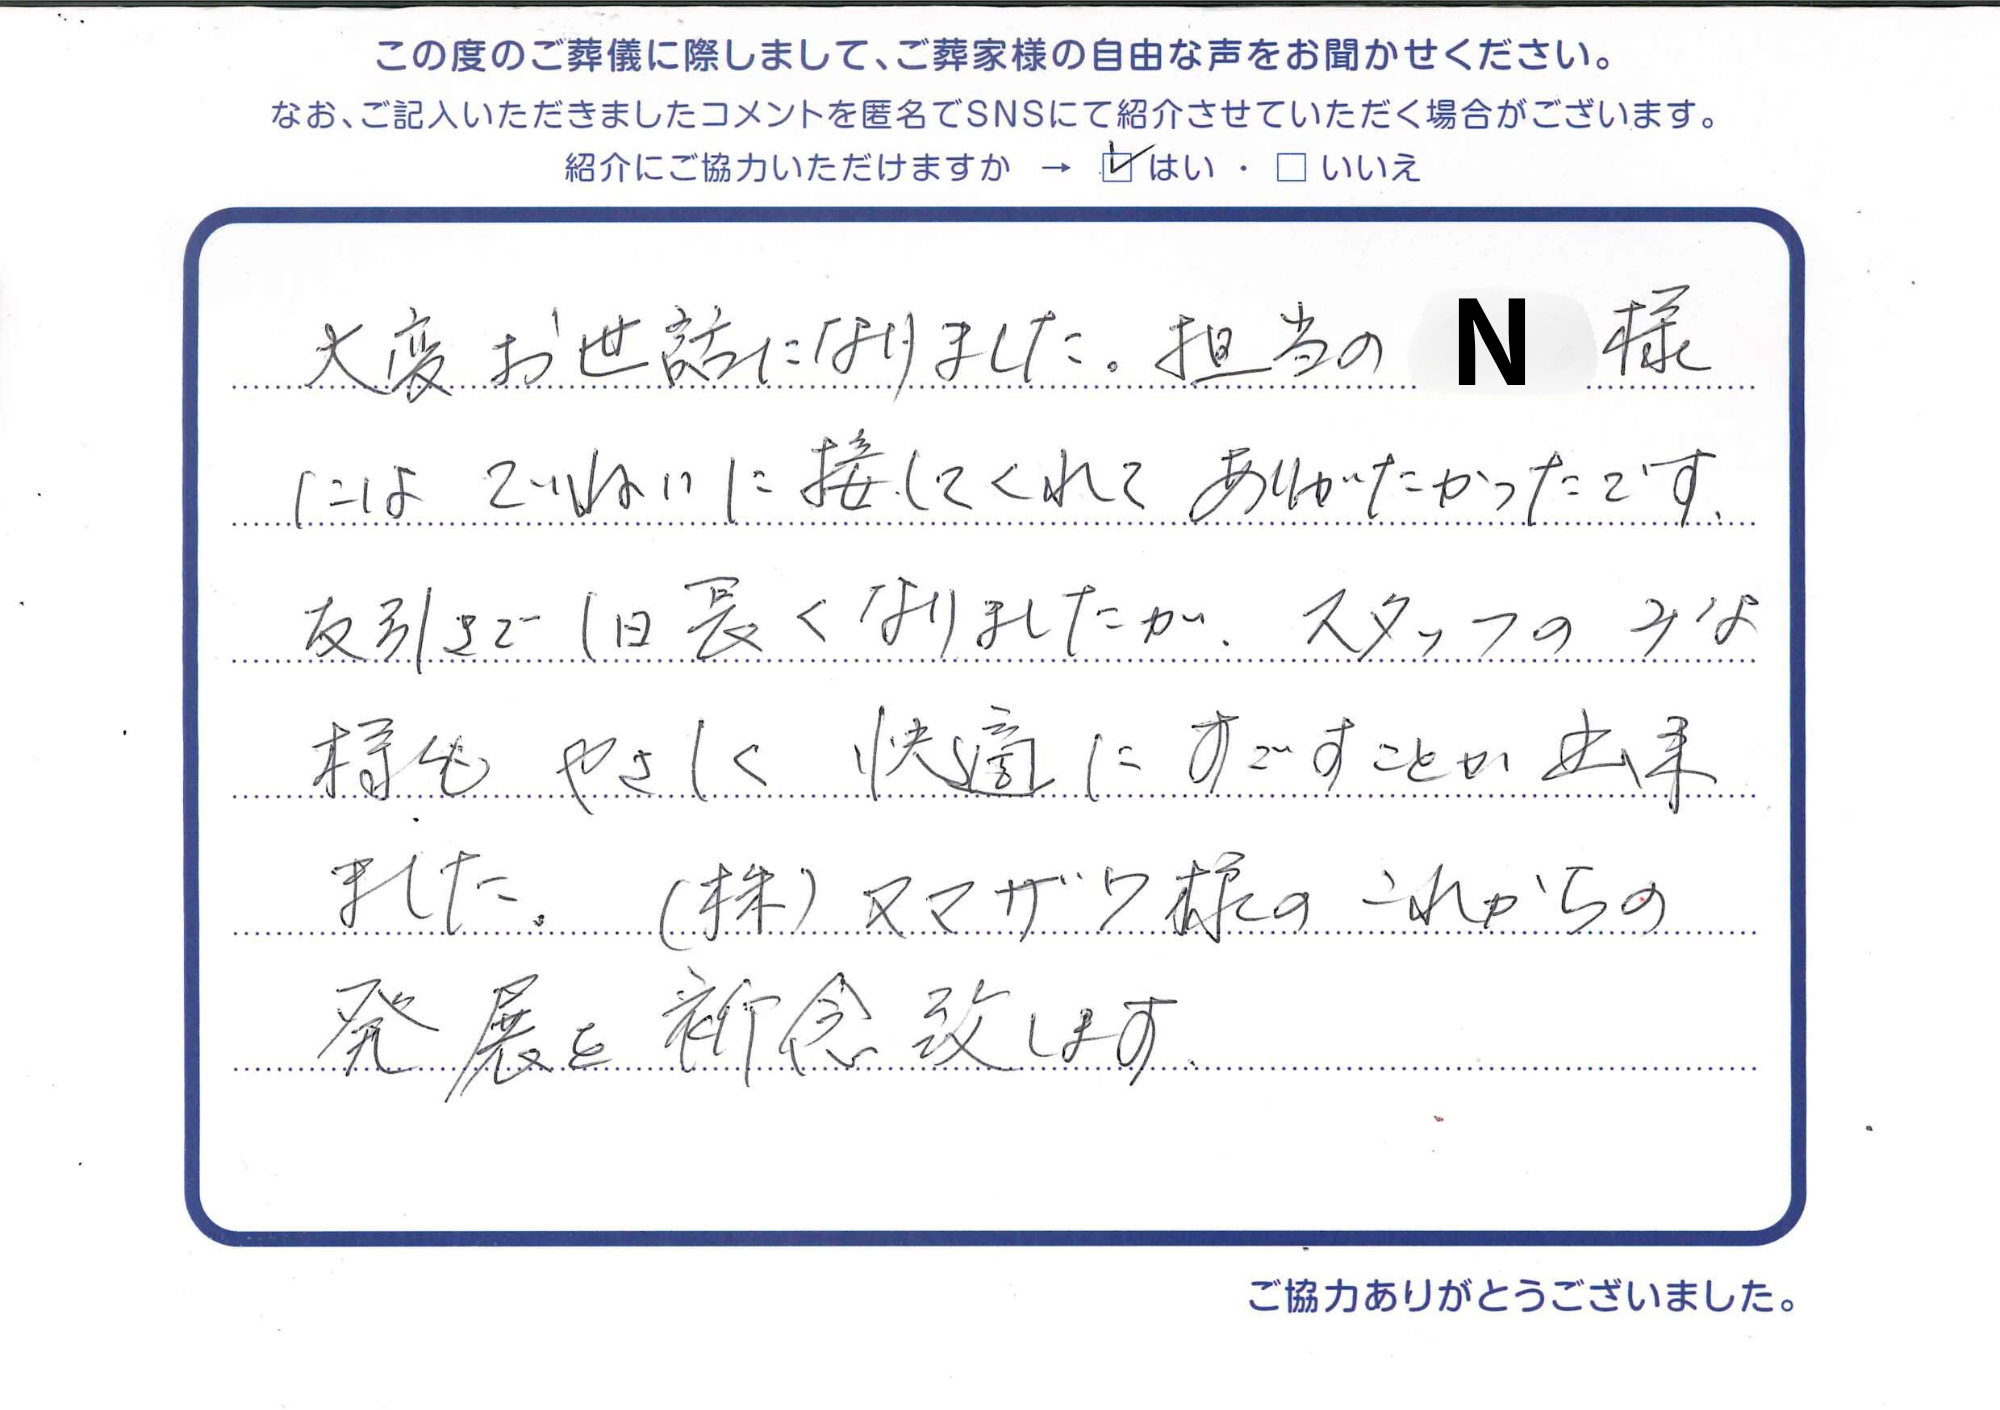 この度のご葬儀に際しまして、ご葬家様の自由な声をお聞かせください。
なお、ご記入いただきましたコメントを匿名でSNSにて紹介させていただく場合がございます。
紹介にご協力いただけますか → ☑はい ・ □ いいえ
大変お世話になりました。担当の N 様
には ていねいに接してくれて ありがたかったです。
友引きで1日長くなりましたが、スタッフのみな
様も やさしく 快適にすごすことが出来
ました。 (株)ヌマザワ様のこれからの
発展を祈念致します。
ご協力ありがとうございました。